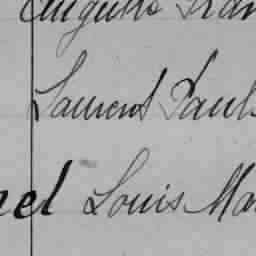 Auguste Fran
Laurent Paul
el Louis Ma